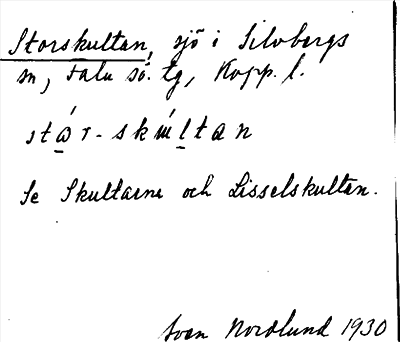 Storskultan, sjö i Silvbergs
sn, Falu sö. tg, Kopp. l.
stár-skúltan
Se Skultarna och Lisselskultan.
Sven Nordlund 1930